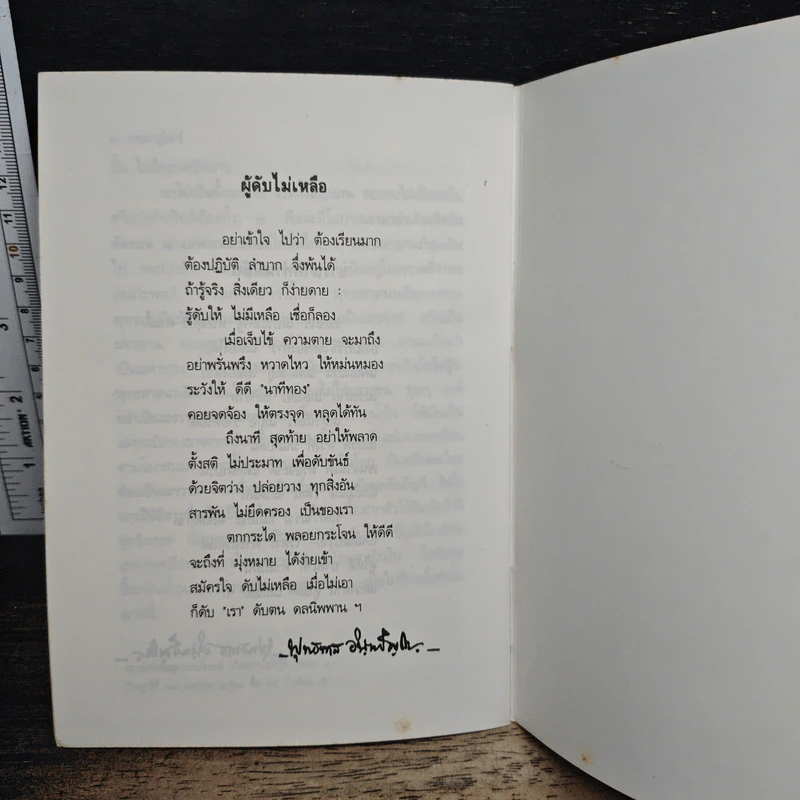 ผู้ดับไม่เหลือ
อย่าเข้าใจ ไปว่า ต้องเรียนมาก
ต้องปฏิบัติ ลำบาก จึงพ้นได้
ถ้ารู้จริง สิ่งเดียว ก็ง่ายดาย :
รู้ดับให้ ไม่มีเหลือ เชื่อก็ลอง
เมื่อเจ็บไข้ ความตาย จะมาถึง
อย่าพรั่นพรึง หวาดไหว ให้หม่นหมอง
ระวังให้ ดีดี "นาทีทอง"
คอยจดจ้อง ให้ตรงจุด หลุดได้ทัน
ถึงนาที สุดท้าย อย่าให้พลาด
ตั้งสติ ไม่ประมาท เพื่อดับขันธ์
ด้วยจิตว่าง ปล่อยวาง ทุกสิ่งอัน
สารพัน ไม่ยึดครอง เป็นของเรา
ตกกระได พลอยกระโจน ให้ดีดี
จะถึงที่ มุ่งหมาย ได้ง่ายเข้า
สมัครใจ ดับไม่เหลือ เมื่อไม่เอา
ก็ดับ "เรา" ดับตน ดลนิพพาน ฯ
พุทธทาส อินฺทปัญฺโญ